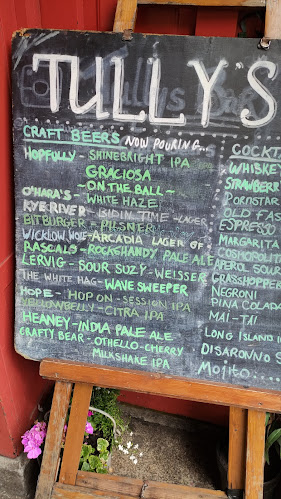 TULLY'S
CRAFT BEERS NOW POURING...
HOPFULLY - SHINEBRIGHT IPA
GRACIOSA
- ON THE BALL -
WHITE HAZE
O'HARA'S
KYE RIVER - BIDIN TIME - LAGER
BITBURGER - PILSNER
WICKLOW WOLF - ARCADIA LAGER GF
RASCALS - ROCK&HANDY PALE ALE
LERVIG - SOUR SUZY - WEISSER
THE WHITE HAG - WAVE SWEEPER
HOPE - HOP ON - SESSION IPA
YELLOWBELLY - CITRA IPA
HEANEY - INDIA PALE ALE
CRAFTY BEAR - OTHELLO - CHERRY
MILKSHAKE IPA
COCKT
WHISKEY
STRAWBERR
PORNSTAR
OLD FAS
ESPRESSO
MARGARITA
COSMOPOLIT
APEROL SOUR
GRASSHOPPER
NEGRONI
PINA COLADA
MAI-TAI
LONG ISLAND I
DISARONNO S
Mojito....